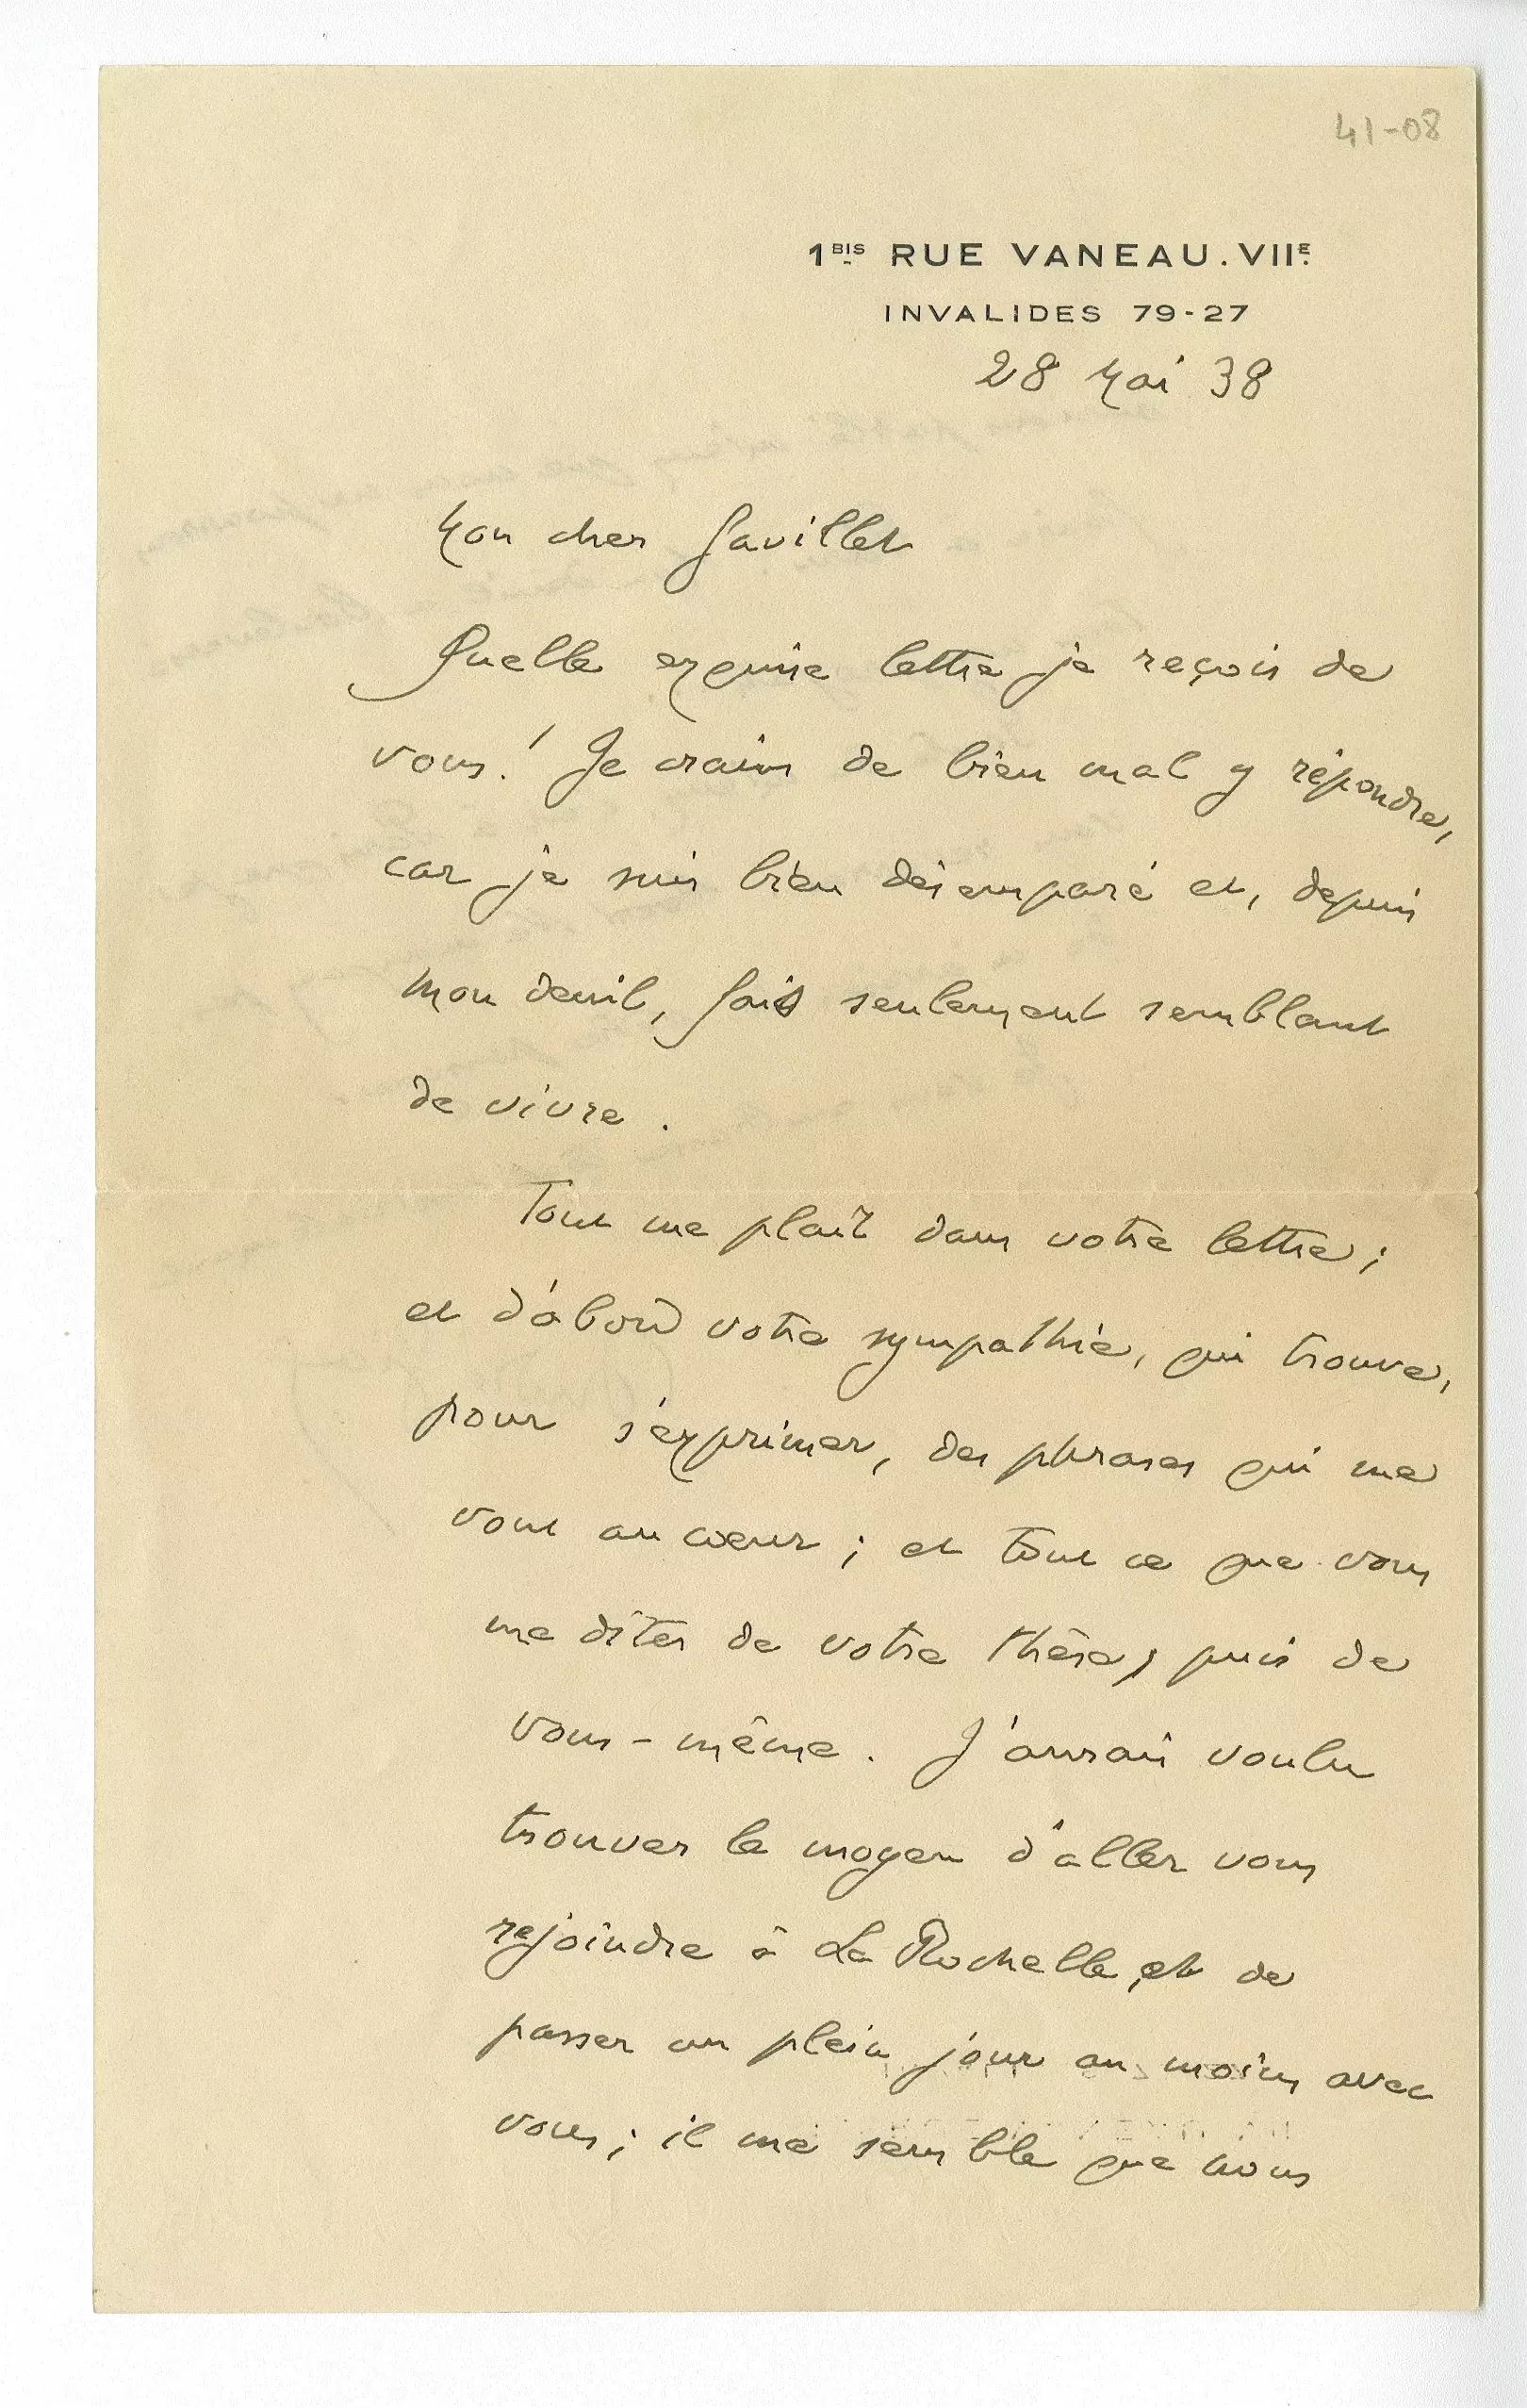 41-08
1BIS RUE VANEAU. VIIE.
INVALIDES 79-27
28 Mai 38
Mon cher Gavillet
Quelle exquise lettre je reçois de
vous! Je crains de bien mal y répondre,
car je suis bien désemparé et, depuis
mon deuil, fais seulement semblant
de vivre.
Tout me plaît dans votre lettre;
et d'abord votre sympathie, qui trouve,
pour s'exprimer, des phrases qui me
vont au cœur; et tout ce que vous
me dites de votre thèse, puis de
vous-même. J'aurais voulu
trouver le moyen d'aller vous
rejoindre à La Rochelle, et de
passer un plein jour au moins avec
vous; il me semble que nous